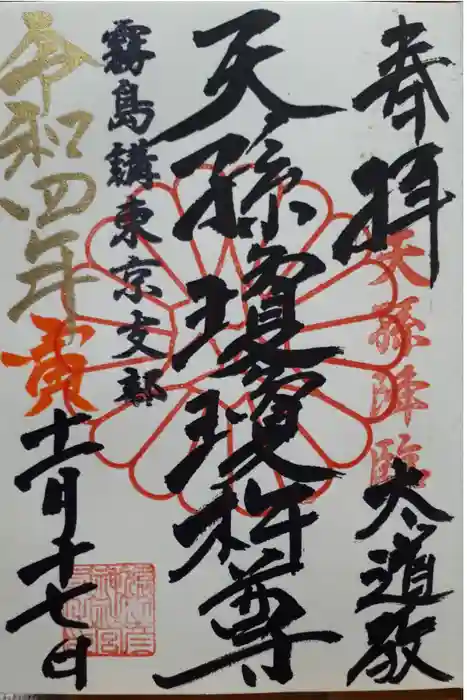 奉拝
天孫降臨
太道教
天孫瓊瓊杵尊
霧島講東京支部
令和四年
寅
十一月十七日